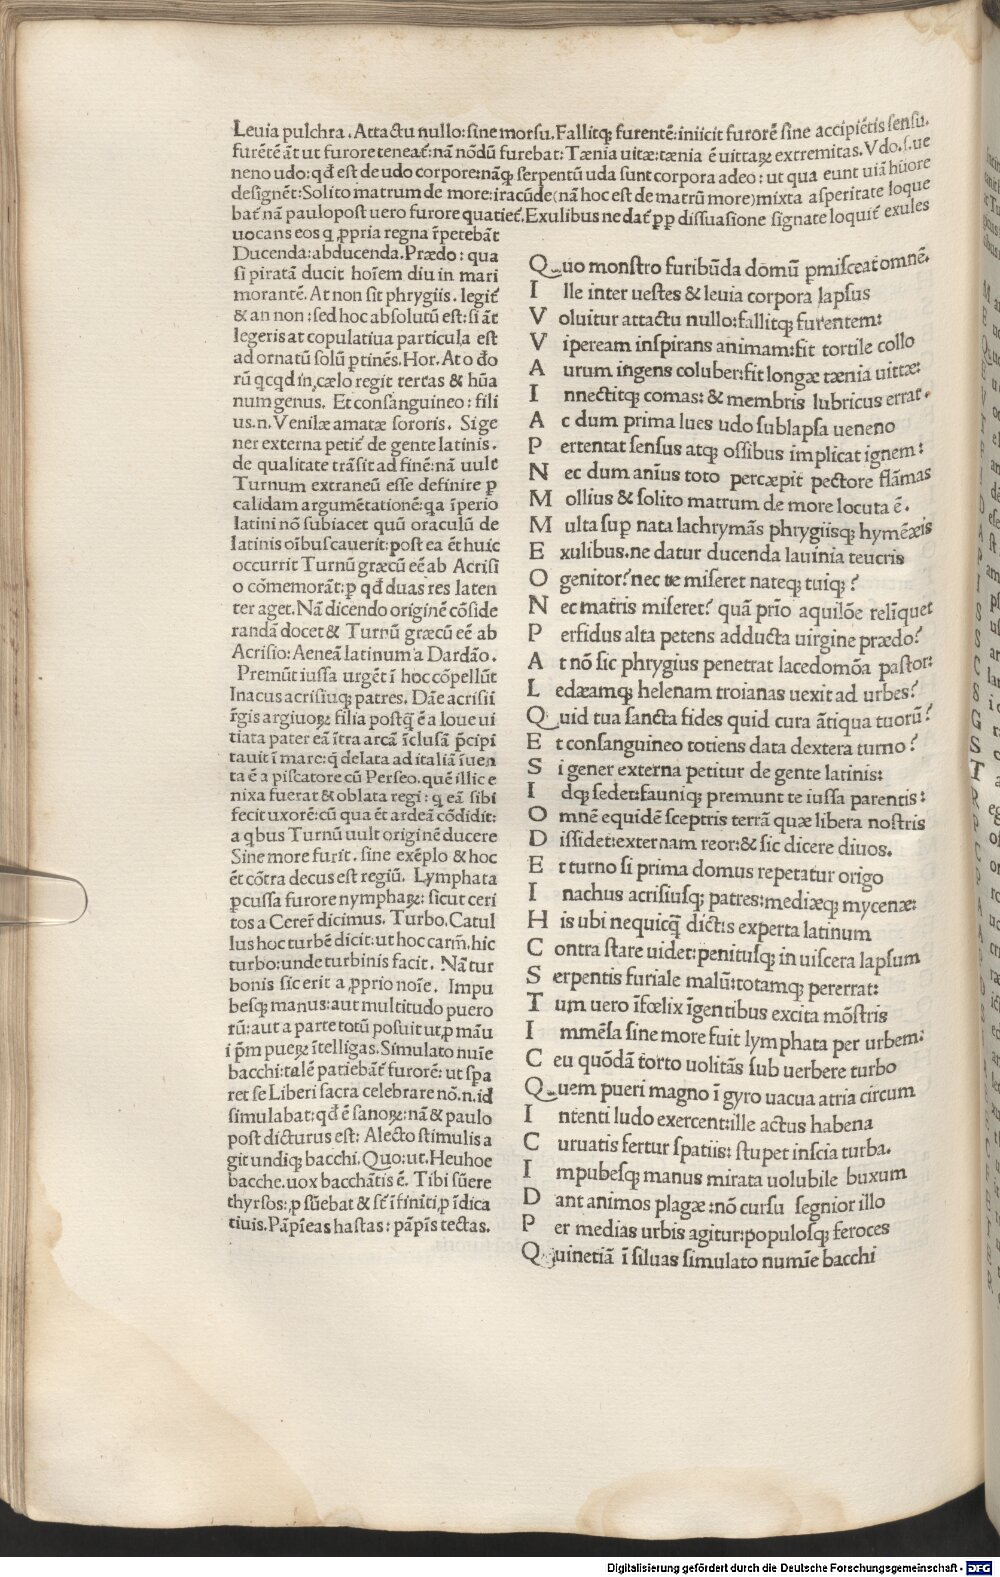 Leuia pulchra. Attactu nullo: sine morsu. Fallitq; furentē: iniicit furorē sine accipiētis sensu.
furētē āt ut furore teneat̄: nā nōdū furebat: Tænia uitæ: tænia ē uittaꝝ extremitas. Vdo. s. ue
neno udo: qđ est de udo corpore: nāq; serpentū uda sunt corpora adeo: ut qua eunt uiā hūore
designēt: Solito matrum de more: iracūde (nā hoc est de matrū more) mixta asperitate loque
bat̄ nā paulopost uero furore quatiet̄. Exulibus ne dat̄ ꝓp dissuasione signate loquit̄ exules
uocans eos q ꝓpria regna r̄petebāt
Ducenda: abducenda. Prædo: qua
si piratā ducit hoīem diu in mari
morantē. At non sit phrygiis. legit̄
& an non: sed hoc absolutū est: si āt
legeris at copulatiua particula est
ad ornatū solū ꝑtinēs. Hor. At o đo
rū qcqd in cælo regit terras & hūa
num genus. Et consanguineo: fili
us. n. Venilæ amatæ sororis. Si ge
ner externa petit̄ de gente latinis.
de qualitate trāsit ad finē: nā uult
Turnum extraneū esse definire ꝑ
calidam argumētationē: qa īperio
latini nō subiacet quū oraculū de
latinis oībus cauerit: post ea ēt huic
occurrit Turnū græcū eē ab Acrisi
o cōmemorāt: ꝑ qđ duas res laten
ter aget. Nā dicendo originē cōside
randā docet & Turnū græcū eē ab
Acrisio: Aeneā latinum a Dardāo.
Premūt iussa urgēt ī hoc cōpellūt
Inacus acrisiusq; patres. Dāe acrisii
r̄gis argiuoꝝ filia postq̄ ē a Ioue ui
tiata pater eā ītra arcā īclusā p̄cipi
tauit ī mare: q̄ delata ad italiā īuen
ta ē a piscatore cū Perseo. quē illic e
nixa fuerat & oblata regi: q eā sibi
fecit uxorē: cū qua ēt ardeā cōdidit:
a qbus Turnū uult originē ducere
Sine more furit. sine exēplo & hoc
ēt cōtra decus est regiū. Lymphata
ꝑcussa furore nymphaꝝ: sicut ceri
tos a Cerer̄ dicimus. Turbo. Catul
lus hoc turbē dicit: ut hoc carm̄. hic
turbo: unde turbinis facit. Nā tur
bonis sic erit a ꝓprio noīe. Impu
besq; manus: aut multitudo puero
rū: aut a parte totū posuit ut ꝑ māu
ī p̄m pueꝝ ītelligas. Simulato nuīe
bacchi: talē patiebat̄ furorē: ut spa
ret se Liberi sacra celebrare nō. n. id
simulabat: qđ ē sanoꝝ: nā & paulo
post dicturus est: Alecto stimulis a
git undiq; bacchi. Quo: ut. Heuhoe
bacche. uox bacchātis ē. Tibi sūere
thyrsos: ꝓ sūebat & sēt īfinīti ꝓ īdica
tiuis. Pāpīeas hastas: pāpīs tectas.
Quo monstro furibūda domū ꝑmisceat omnē.
I lle inter uestes & leuia corpora lapsus
V oluitur attactu nullo: fallitq; furentem:
V ipeream inspirans animam: fit tortile collo
A urum ingens coluber: fit longæ tænia uittæ:
I nnectitq; comas: & membris lubricus errat.
A c dum prima lues udo sublapsa ueneno
P ertentat sensus atq; ossibus implicat ignem:
N ec dum anīus toto percæpit pectore flāmas
M ollius & solito matrum de more locuta ē.
M ulta sup nata lachrymās phrygiisq; hymēæis
E xulibus. ne datur ducenda lauinia teucris
O genitor? nec te miseret nateq; tuiq;?
N ec matris miseret? quā prīo aquilōe relīquet
P erfidus alta petens adducta uirgine prædo?
A t nō sic phrygius penetrat lacedomōa pastor:
L edæamq; helenam troianas uexit ad urbes?
Quid tua sancta fides quid cura ātiqua tuorū?
E t consanguineo totiens data dextera turno?
S i gener externa petitur de gente latinis:
I dq; sedet: fauniq; premunt te iussa parentis:
O mnē equidē sceptris terrā quæ libera nostris
D issidet: externam reor: & sic dicere diuos.
E t turno si prima domus repetatur origo
I nachus acrisiusq; patres: mediæq; mycenæ:
H is ubi nequicq̄ dictis experta latinum
C ontra stare uidet: penitusq; in uiscera lapsum
S erpentis furiale malū: totamq; pererrat:
T um uero īfœlix īgentibus excita mōstris
I mmēsa sine more fuit lymphata per urbem:
C eu quōdā torto uolitās sub uerbere turbo
Quem pueri magno ī gyro uacua atria circum
I ntenti ludo exercent: ille actus habena
C uruatis fertur spatiis: stupet inscia turba.
I mpubesq; manus mirata uolubile buxum
D ant animos plagæ: nō cursu segnior illo
P er medias urbis agitur: populosq; feroces
Quinetiā ī siluas simulato numīe bacchi
Digitalisierung gefördert durch die Deutsche Forschungsgemeinschaft - DFG